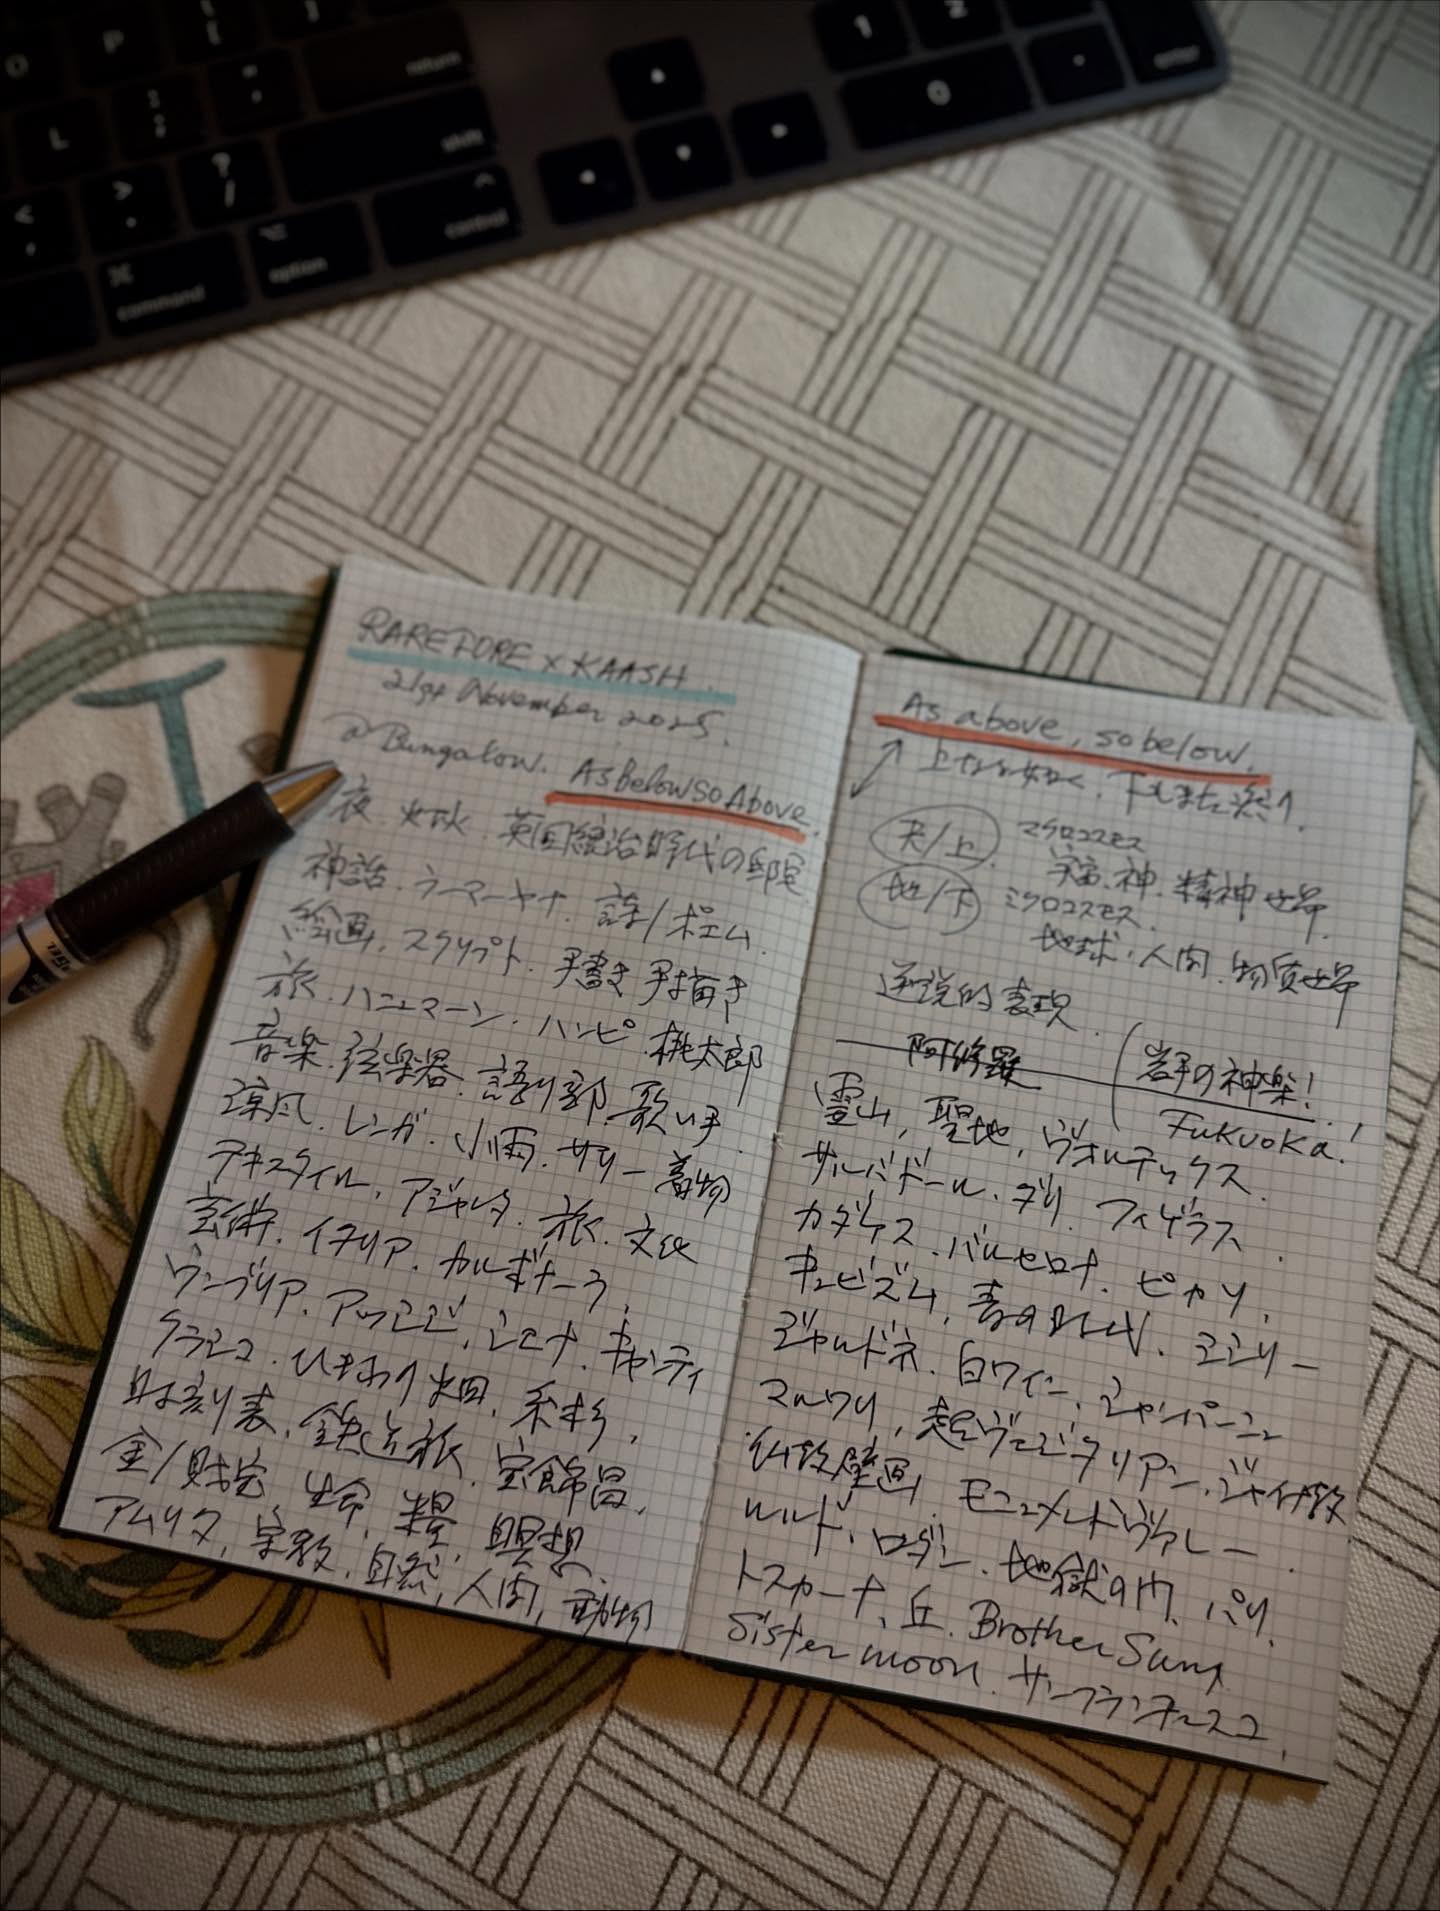 O
P
return
L
:
;
"
'
shift
<
,
>
.
?
/
control
command
option
1
2
0
.
enter
RAREFORE × KAASH.
21st November 2025.
@Bungalow. As Below So Above.
夜、火、英国統治時代の邸宅
神話、ラーマーヤナ、詩/ポエム
絵画、スクリプト、手書き 手描き
旅、ハニュマーン、ハンピ、桃太郎
音楽、弦楽器、語り部、歌い手
涼風、レンガ、小雨、サリー 着物
テキスタイル、アジャンタ、旅、文化
芸術、イタリア、カルボナーラ、
ウンブリア、アッシジ、シエナ、キャンティ
クラシコ、ひまわり畑、糸杉、
時刻表、鉄道旅、宝飾品、
金/財宝、生命、糧、瞑想、
アムリタ、宗教、自然、人間、動物
As above, so below.
上なる如く、下もまた然り.
天/上 マクロコスモス
宇宙、神、精神世界
地/下 ミクロコスモス
地球、人間、物質世界
逆説的表現、
阿修羅 (岩手の神楽!
Fukuoka!
霊山、聖地、ヴォルテックス、
サルバドール、ダリ、フィゲラス、
カダケス、バルセロナ、ピカソ、
キュビズム、青の時代、ココリー
シャルドネ、白ワイン、シャンパーニュ
マルワリ、超ヴェジタリアン、ジャイナ教
仏教壁画、モニュメントヴァレー、
ルルド、ロダン、地獄の門、パリ、
トスカーナ、丘、Brother Sun,
Sister moon、サンフランチェスコ、